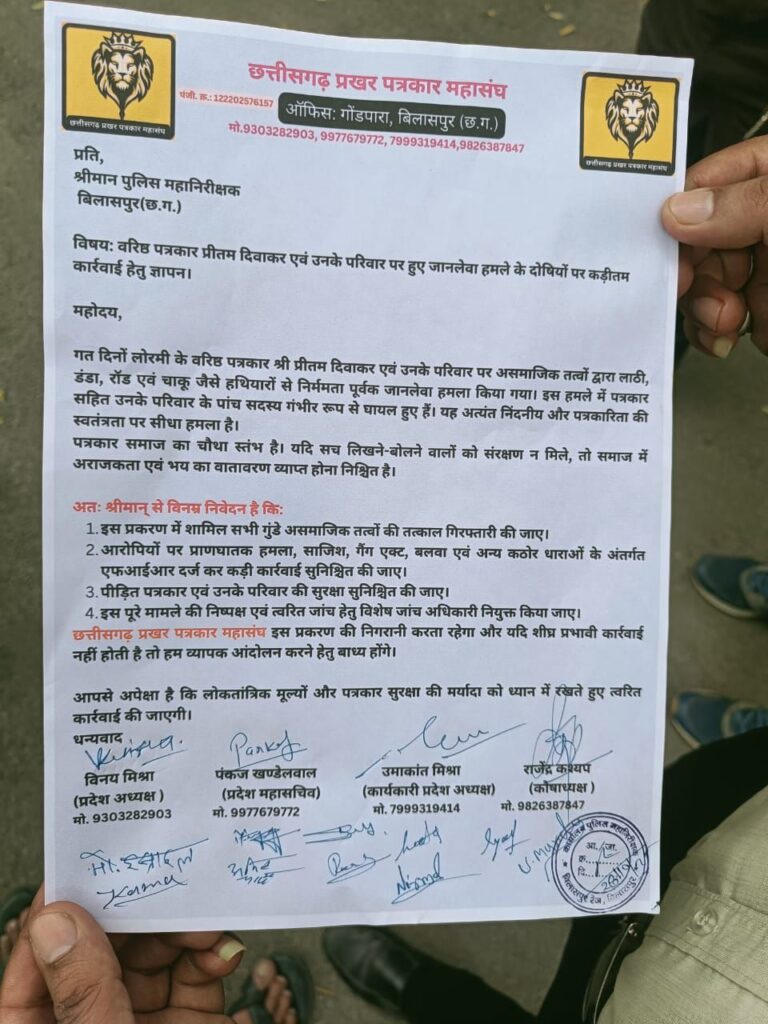 छत्तीसगढ़ प्रखर पत्रकार महासंघ
पंजी. क्र.: 122202576157
ऑफिस: गोंडपारा, बिलासपुर (छ.ग.)
मो.9303282903, 9977679772, 7999319414,9826387847
छत्तीसगढ़ प्रखर पत्रकार महासंघ
छत्तीसगढ़ प्रखर पत्रकार महासंघ
प्रति,
श्रीमान पुलिस महानिरीक्षक
बिलासपुर(छ.ग.)
विषय: वरिष्ठ पत्रकार प्रीतम दिवाकर एवं उनके परिवार पर हुए जानलेवा हमले के दोषियों पर कड़ीतम
कार्रवाई हेतु ज्ञापन।
महोदय,
गत दिनों लोरमी के वरिष्ठ पत्रकार श्री प्रीतम दिवाकर एवं उनके परिवार पर असमाजिक तत्वों द्वारा लाठी,
डंडा, रॉड एवं चाकू जैसे हथियारों से निर्ममता पूर्वक जानलेवा हमला किया गया। इस हमले में पत्रकार
सहित उनके परिवार के पांच सदस्य गंभीर रूप से घायल हुए हैं। यह अत्यंत निंदनीय और पत्रकारिता की
स्वतंत्रता पर सीधा हमला है।
पत्रकार समाज का चौथा स्तंभ है। यदि सच लिखने-बोलने वालों को संरक्षण न मिले, तो समाज में
अराजकता एवं भय का वातावरण व्याप्त होना निश्चित है।
अतः श्रीमान् से विनम्र निवेदन है कि:
1. इस प्रकरण में शामिल सभी गुंडे असमाजिक तत्वों की तत्काल गिरफ्तारी की जाए।
2. आरोपियों पर प्राणघातक हमला, साजिश, गैंग एक्ट, बलवा एवं अन्य कठोर धाराओं के अंतर्गत
एफआईआर दर्ज कर कड़ी कार्रवाई सुनिश्चित की जाए।
3. पीड़ित पत्रकार एवं उनके परिवार की सुरक्षा सुनिश्चित की जाए।
4. इस पूरे मामले की निष्पक्ष एवं त्वरित जांच हेतु विशेष जांच अधिकारी नियुक्त किया जाए।
छत्तीसगढ़ प्रखर पत्रकार महासंघ इस प्रकरण की निगरानी करता रहेगा और यदि शीघ्र प्रभावी कार्रवाई
नहीं होती है तो हम व्यापक आंदोलन करने हेतु बाध्य होंगे।
आपसे अपेक्षा है कि लोकतांत्रिक मूल्यों और पत्रकार सुरक्षा की मर्यादा को ध्यान में रखते हुए त्वरित
कार्रवाई की जाएगी।
धन्यवाद
विनय मिश्रा
(प्रदेश अध्यक्ष )
मो. 9303282903
पंकज खण्डेलवाल
(प्रदेश महासचिव)
मो. 9977679772
उमाकांत मिश्रा
(कार्यकारी प्रदेश अध्यक्ष)
मो. 7999319414
राजेंद्र कश्यप
(कोषाध्यक्ष )
मो. 9826387847
Nirmal
कार्यालय पुलिस महानिरीक्षक
आ./जा.
क्र.
दि.
बिलासपुर रेंज, बिलासपुर